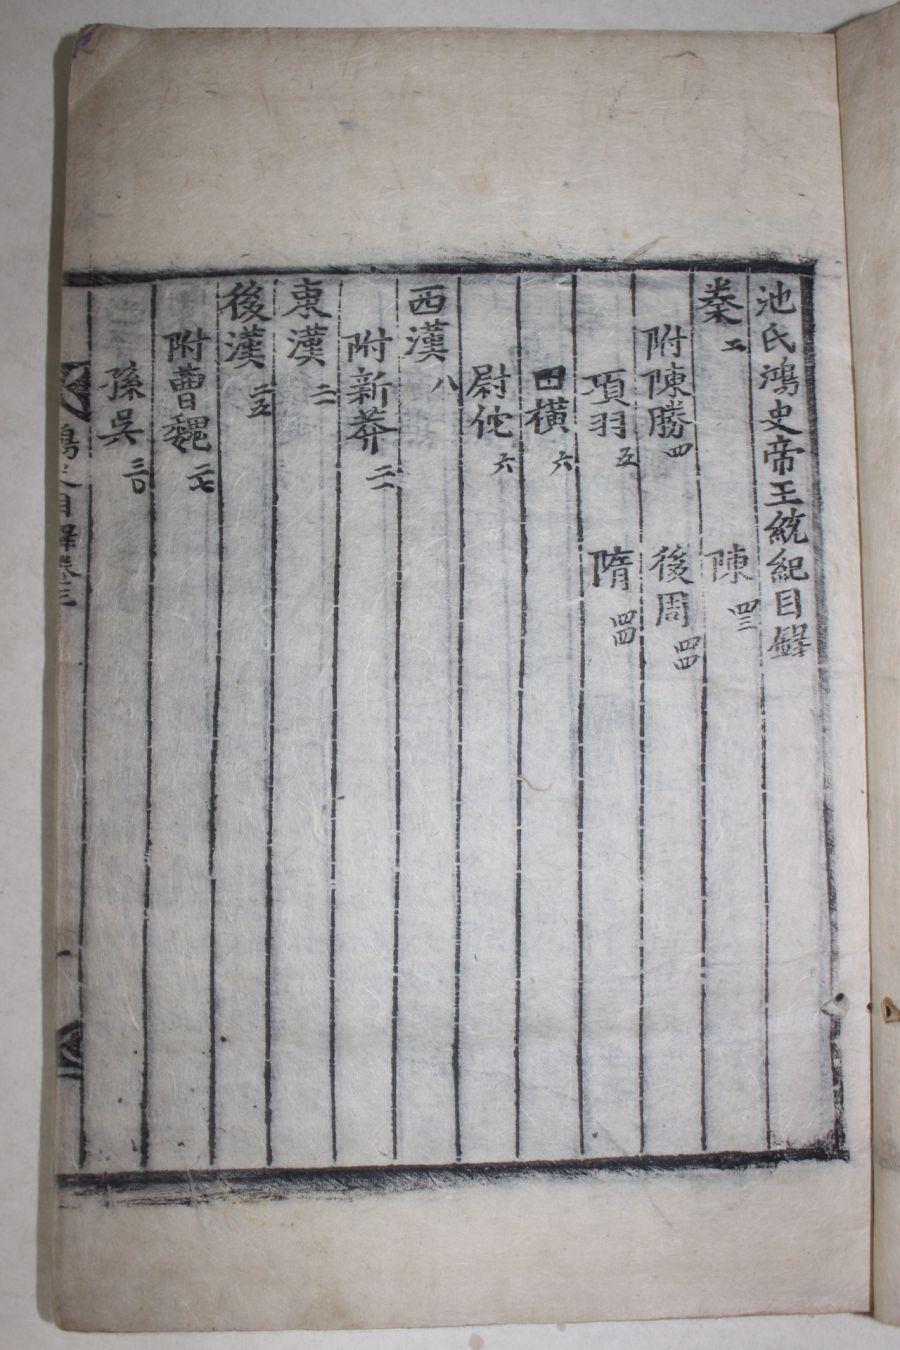 池氏鴻史帝王統紀目錄
秦 二 陳 四三
附陳勝 四 後周 四四
項羽 五 隋 四四
田橫 六
尉佗 六
西漢 八
附新莽 二一
東漢 二二
後漢 二五
附曹魏 二七
孫吳 三〇
鴻史目錄卷三